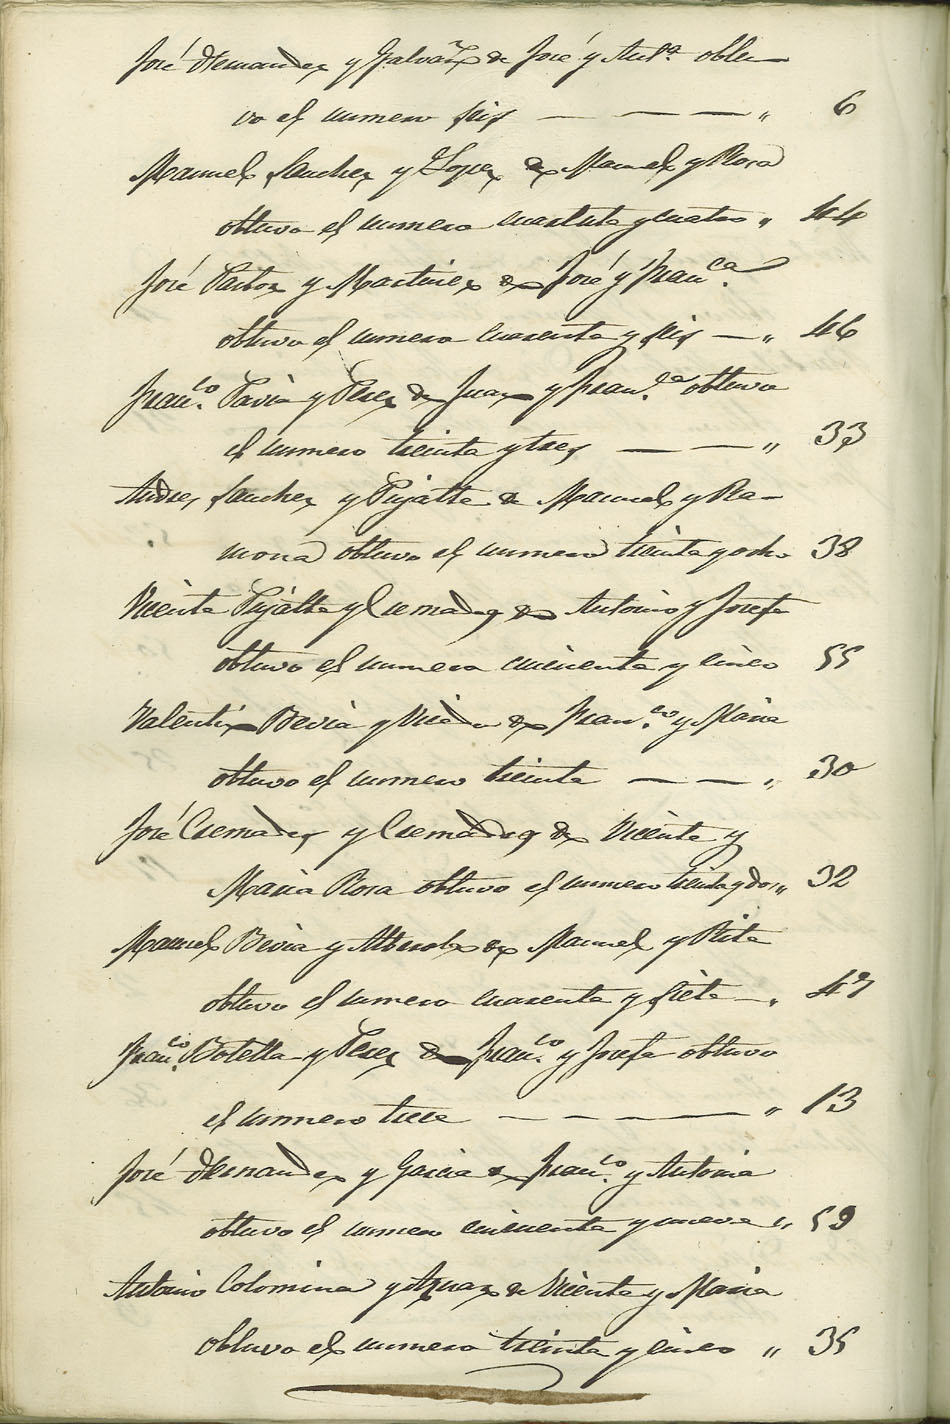 José Hernandez y Galvañ de José y Antª obtu-
vo el numero seis — — — — „ 6
Manuel Sanchez y Lopez de Manuel y Rosa
obtuvo el numero cuarenta y cuatro „ 44
José Pastor y Martinez de José y Franca.
obtuvo el numero cuarenta y seis — „ 46
Franco. Pavia y Perez de Juan y Franca. obtuvo
el numero treinta y tres — — „ 33
Andres Sanchez y Pujalte de Manuel y Ra-
mona obtuvo el numero treinta y ocho 38
Vicente Pujalte y Cremades de Antonio y Josefa
obtuvo el numero cincuenta y cinco 55
Valentin Bevia y de Franco. y Maria
obtuvo el numero treinta — — „ 30
José Cremades y Cremades de Vicente y
Maria Rosa obtuvo el numero treinta y dos „ 32
Manuel Bevia y Alberola de Manuel y Rita
obtuvo el numero cuarenta y siete — „ 47
Franco. Botella y Perez de Franco. y Josefa obtuvo
el numero trece — — — — „ 13
José Hernandez y Garcia de Franco. y Antonia
obtuvo el numero cincuenta y nueve „ 59
Antonio Colomina y Aznar de Vicente y Maria
obtuvo el numero treinta y cinco „ 35